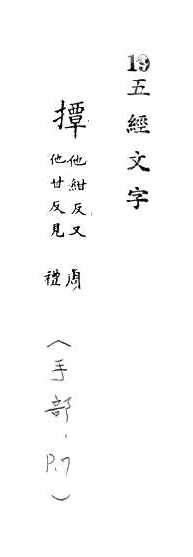 19五經文字
撢
他紺反又
他甘反見
周
禮
（手部．P.7）